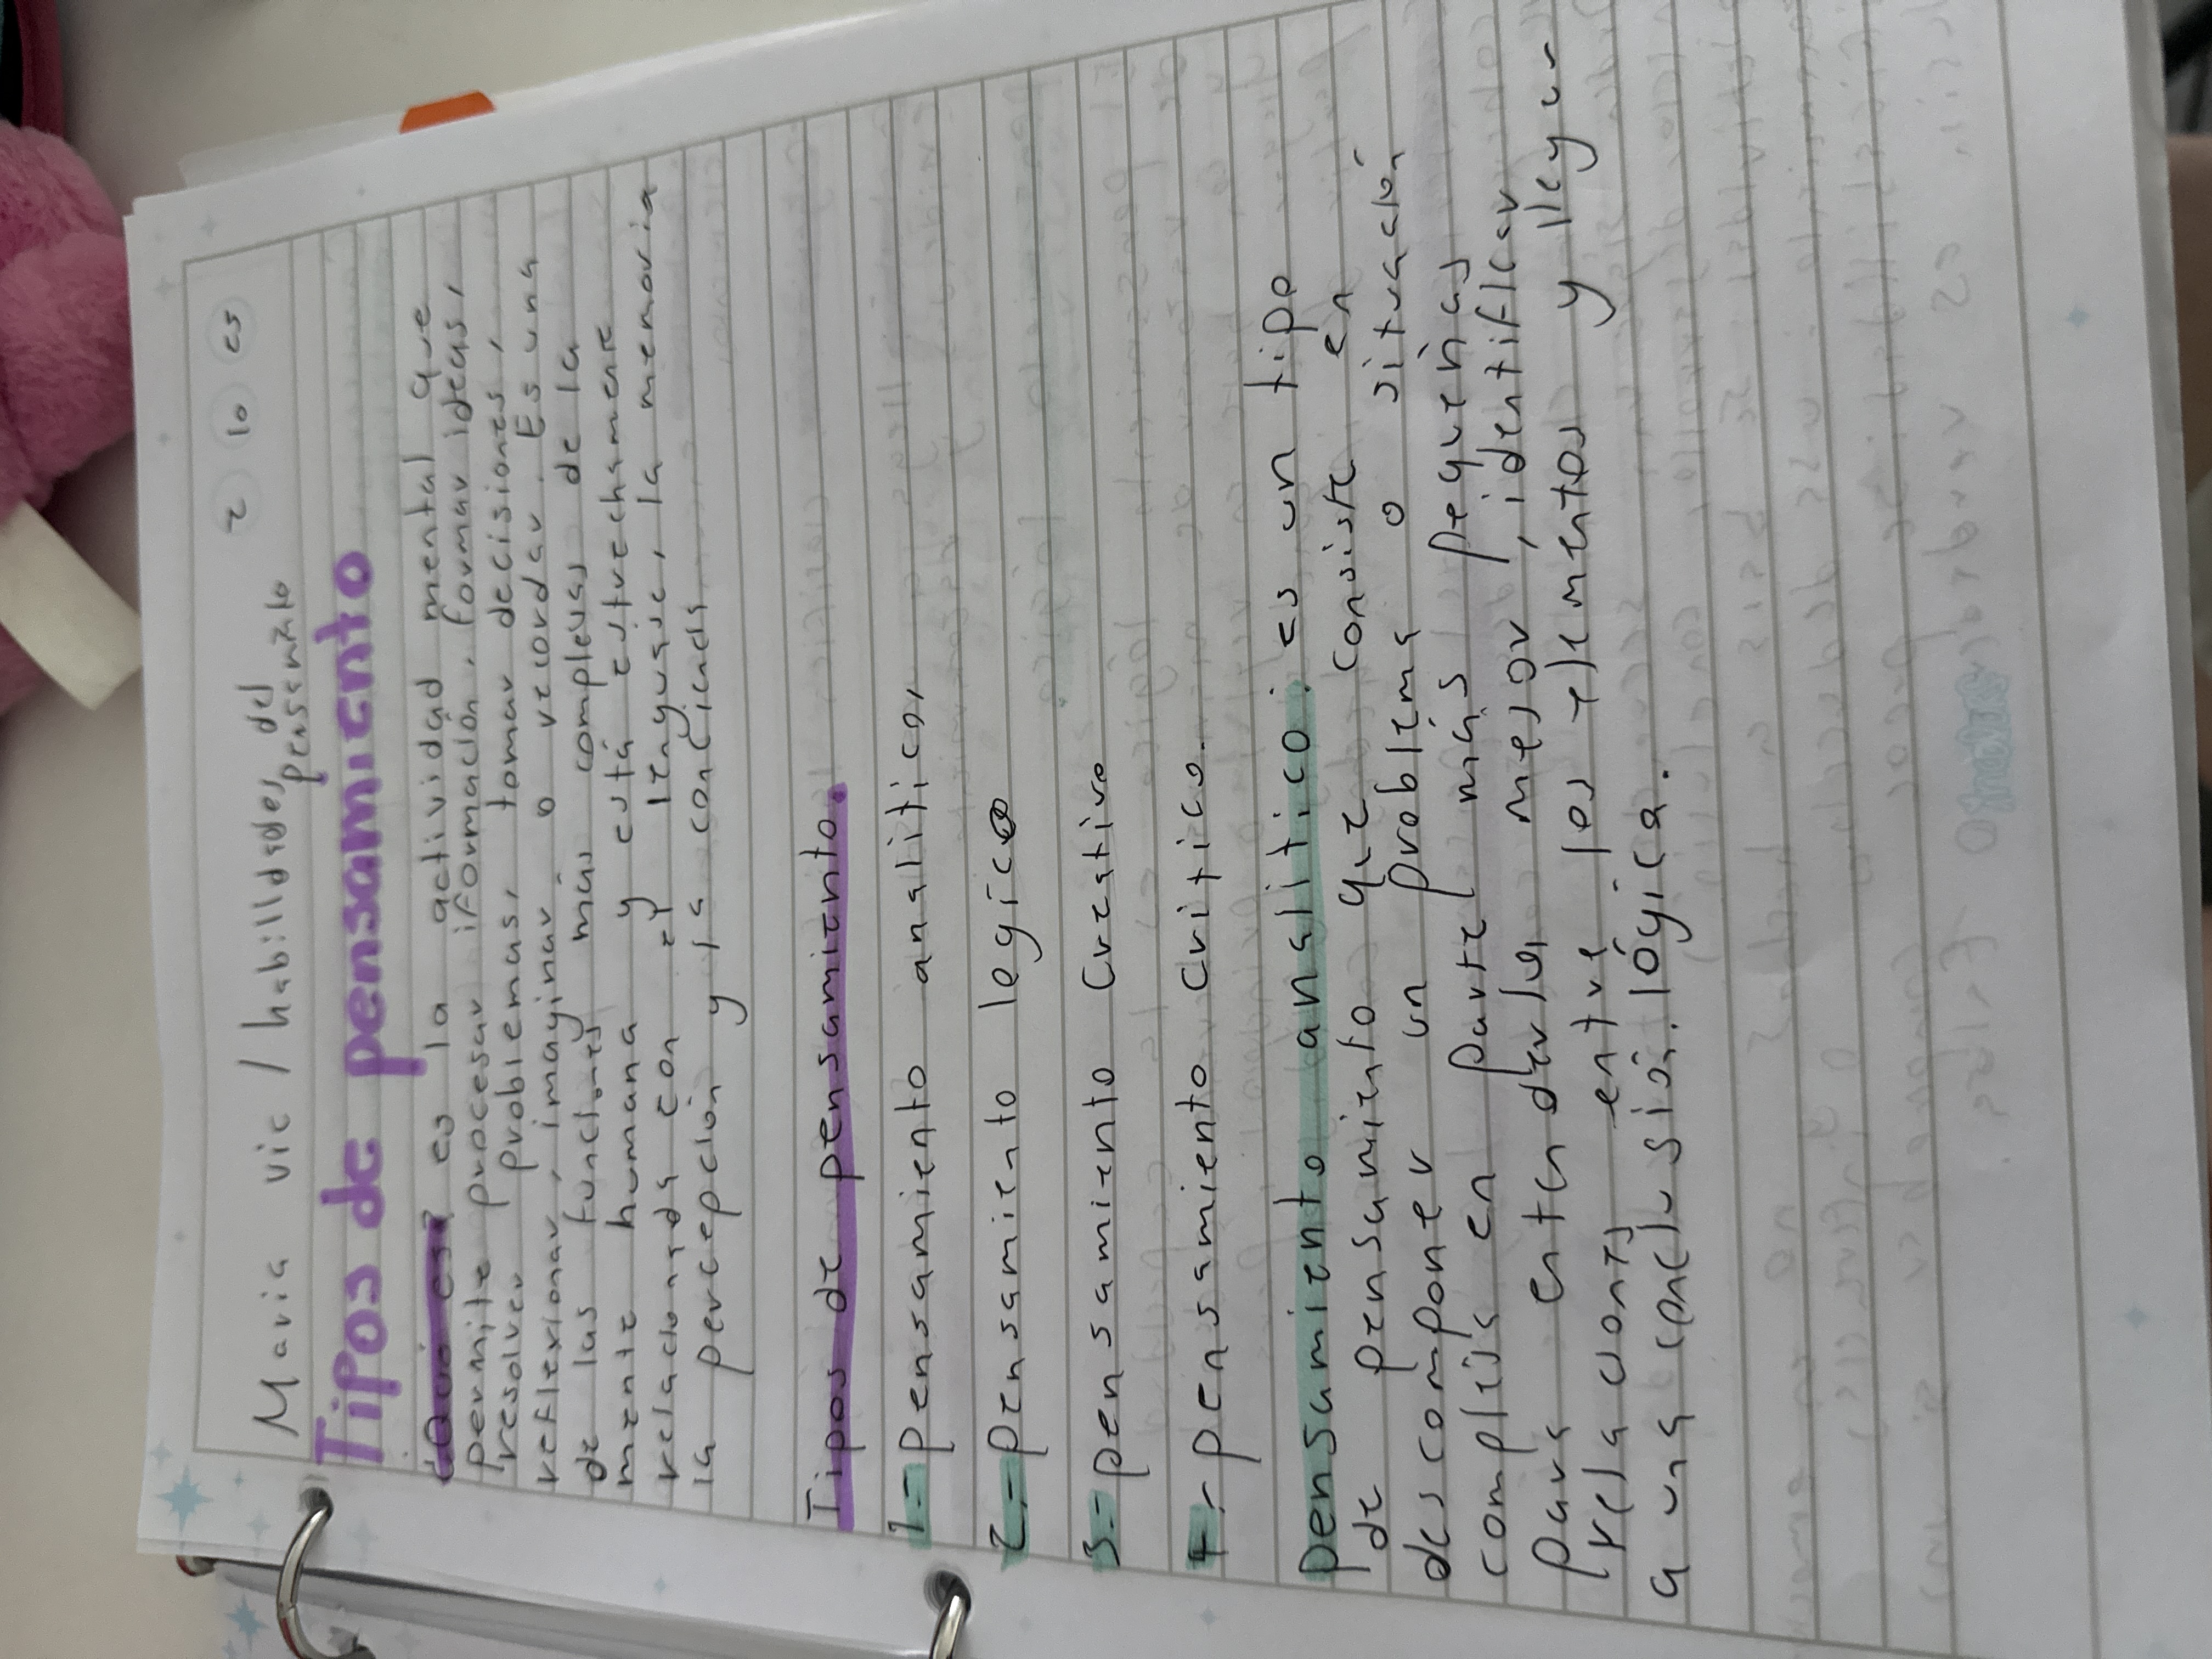 2 10 25
Maria vic / habilidades del
pensamiento
Tipos de pensamiento
¿Qué es? es la actividad mental que
permite procesar iformación, formar ideas,
resolver problemas, tomar decisiones,
reflexionar, imaginar o recordar. Es una
de las funciones más complejas de la
mente humana y está estrechamente
relacionada con el lenguaje, la memoria
la percepción y la conciencia
Tipos de pensamiento.
1.- pensamiento analitico,
2.- pensamiento logico
3- pensamiento creativo
4.- pensamiento critico.
pensamiento analitico: es un tipo
de pensamiento que consiste en
descomponer un problema o situación
compleja en parte más pequeñas
para entenderlo mejor, identificar
relaciones entre los elementos y llegar
a una conclusión lógica.